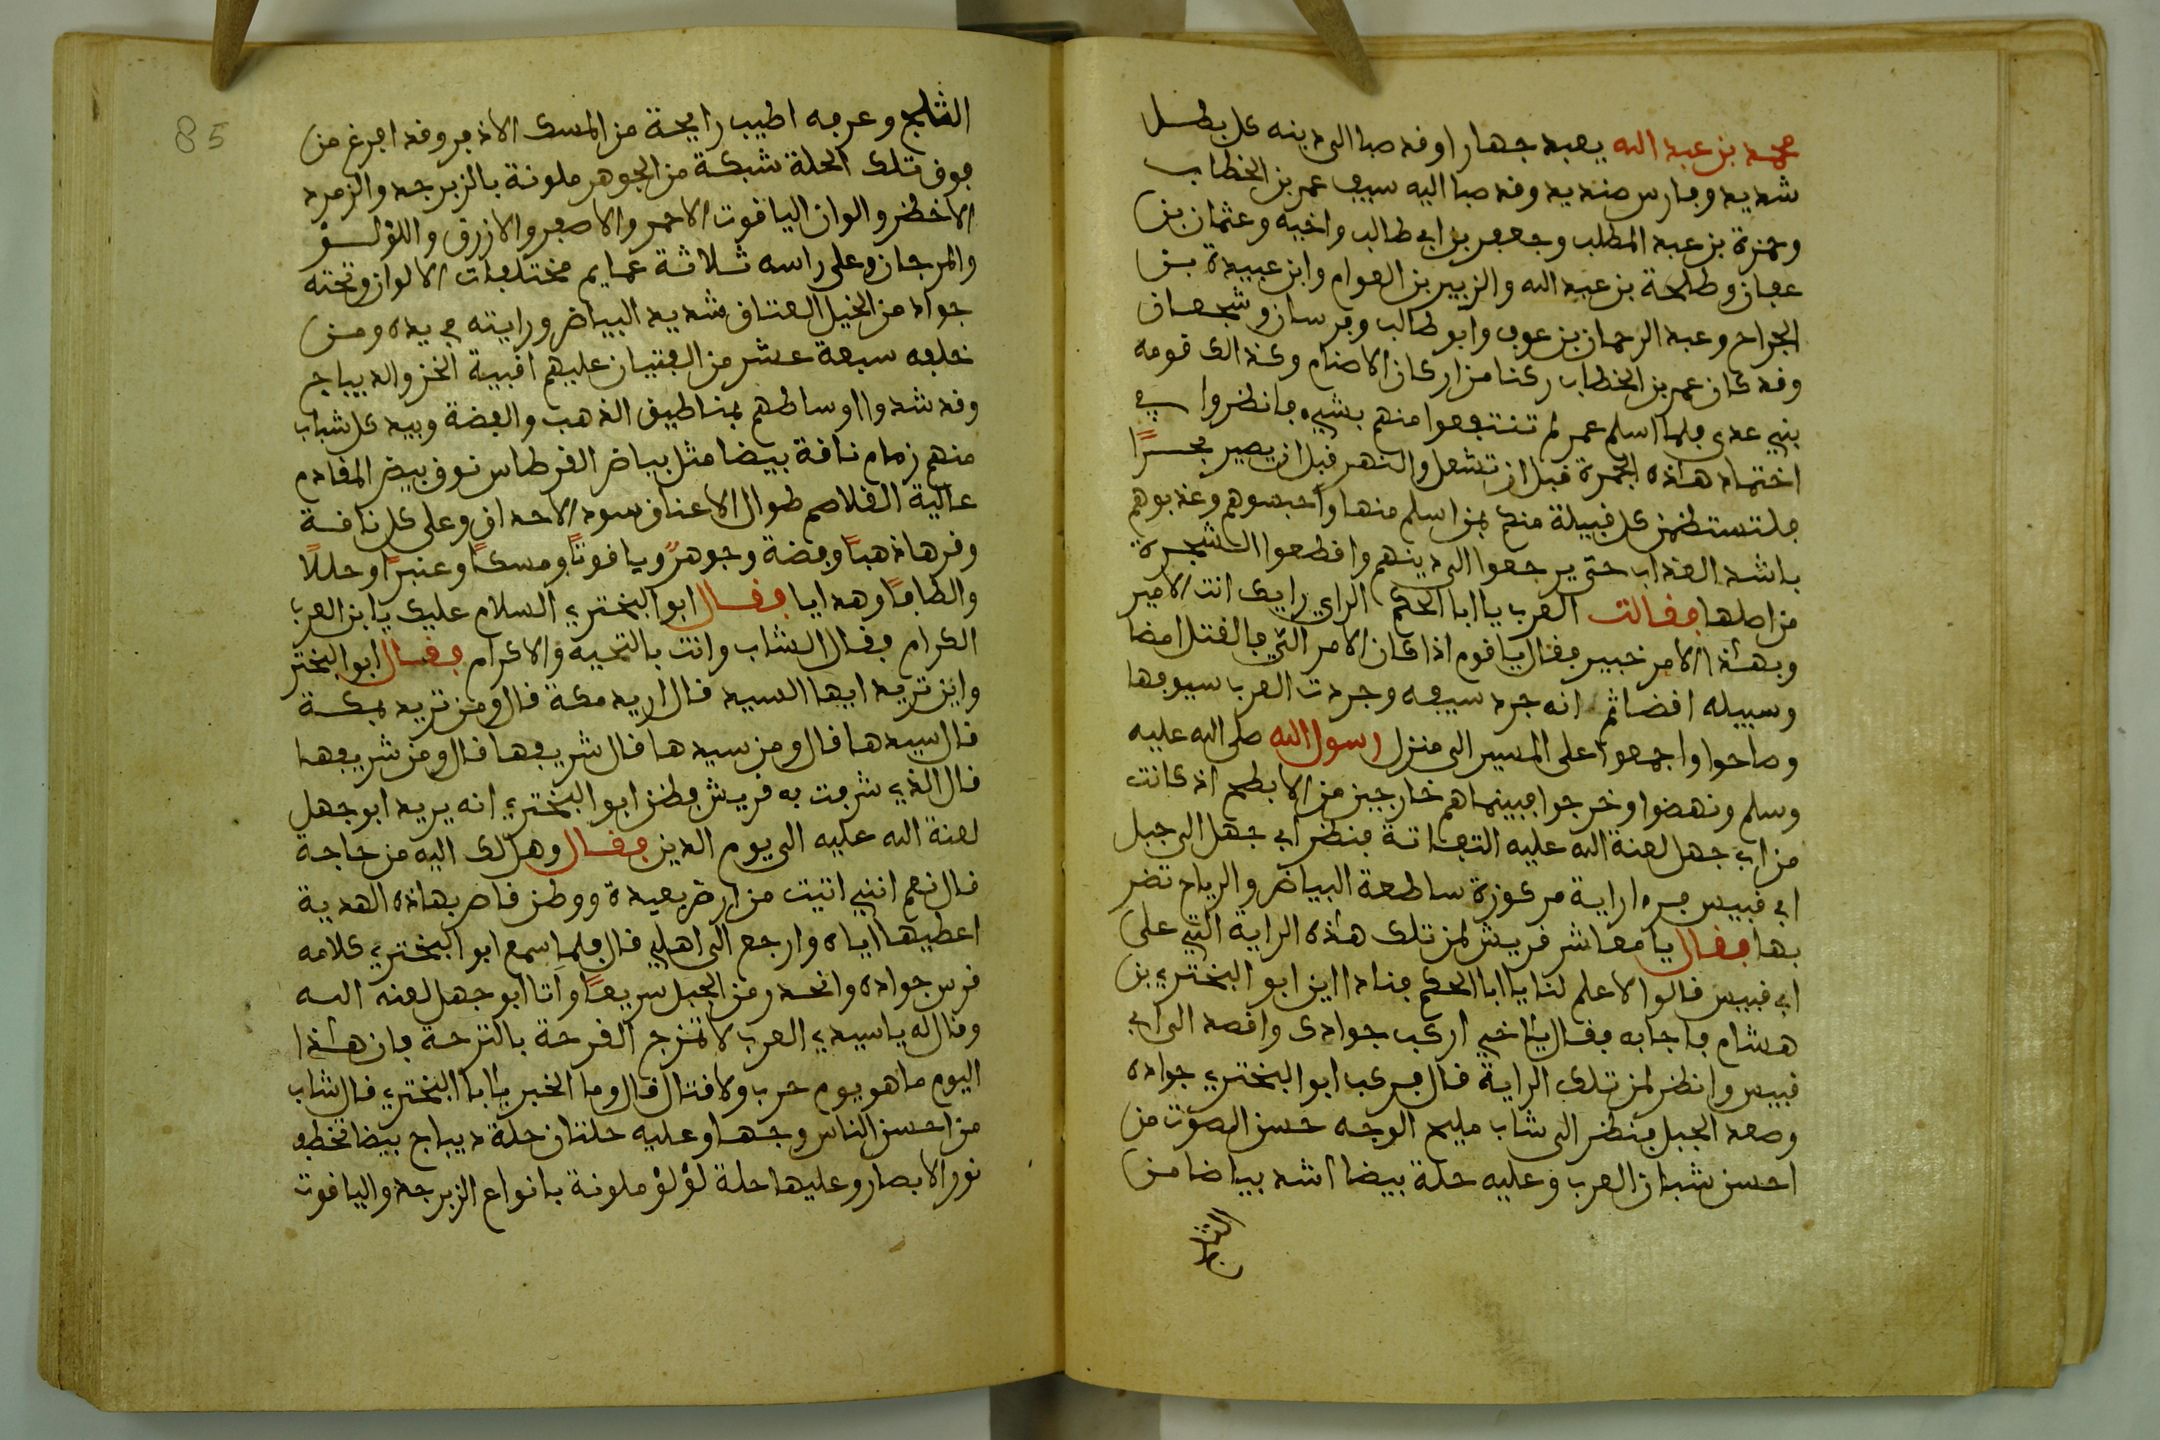 محمد بن عبد الله يعبد جهارا وقد صبا الى دينه كل بطل
شديد وفارس صنديد وقد صبا اليه سيف عمر بن الخطاب
وحمزة بن عبد المطلب وجعفر بن ابي طالب واخيه وعثمان بن
عفان وطلحة بن عبد الله والزبير بن العوام وابن عبيدة بن
الجراح وعبد الرحمان بن عوف وابو طالب وفرسان وشجعان
وقد كان عمر بن الخطاب ركنا من اركان الاصنام وكذالك قومه
بني عدي فلما اسلم عمر لم تنتفعوا منهم بشيء فانظروا في
اخماد هاذه الجمرة قبل ان تشعل والنهر قبل ان يصير بحرًا
فلتستظمن كل قبيلة منكم بمن اسلم منها واحبسوهم وعذبوهم
باشد العذاب حتى يرجعوا الى دينهم واقطعوا الشجرة
من اصلها فقالت العرب يا ابا الحكم الراي رايك انت الامير
وبهاذا الامر خبير فقال يا قوم اذا كان الامر التي فالقتل امضا
وسبيله افضا ثم انه جرد سيفه وجردت العرب سيوفها
وصاحوا واجمعوا على المسير الى منزل رسول الله صلى الله عليه
وسلم ونهضوا وخرجوا فبينما هم خارجين من الابطح اذ كانت
من ابي جهل لعنة الله عليه التفاتة فنظر ابي جهل الى جبل
ابي قبيس فرءا راية مركوزة ساطعة البياض والرياح تضر
بها فقال يا معاشر قريش لمن تلك هذه الراية التي على
ابي قبيس قالوا لا علم لنا يا ابا الحكم فنادا اين ابو البختري بن
هشام فاجابه فقال يا خي اركب جوادك واقصد الى ابي
قبيس وانظر لمن تلك الراية قال فركب ابو البختري جواده
وصعد الجبل فنظر الى شاب مليح الوجه حسن الصوت من
احسن شبان العرب وعليه حلة بيضا اشد بياضا من
الثلج
85
الثلج وعرفه اطيب رايحة من المسك الاذفر وقد افرغ من
فوق تلك الحلة شبكة من الجوهر ملونة بالزبرجد والزمرد
الاخظر والوان الياقوت الاحمر والاصفر والازرق واللؤلؤ
والمرجان وعلى راسه ثلاثة عمايم مختلفات الالوان وتحته
جواد من الخيل العتاق شديد البياض ورايته في يده ومن
خلفه سبعة عشر من الفتيان عليهم اقبية الخز والديباج
وقد شدوا اوساطهم بمناطيق الذهب والفضة وبيد كل شباب
منهم زمام ناقة بيضا مثل بياض القرطاس نوق بيض المقادم
عالية القلاصم طوال الاعناق سود الاحداق وعلى كل ناقة
وقرها ذهبًا وفضة وجوهرً وياقوتًا ومسكًا وعنبرًا وحللًا
والطافًا وهدايا فقال ابو البختري السلام عليك يا ابن العرب
الكرام فقال الشاب وانت بالتحية والاكرام فقال ابو البختر
واين تريد ايها السيد قال اريد مكة قال ومن تريد بمكة
قال سيدها قال ومن سيدها قال شريفها قال ومن شريفها
قال الذي شرفت به قريش فظن ابو البختري انه يريد ابو جهل
لعنة الله عليه الى يوم الدين فقال وهل لك اليه من حاجة
قال نعم انني اتيت من ارض بعيدة ووطن قاص بهاذه الهدية
اعطيها اياه وارجع الى اهلي قال فلما سمع ابو البختري كلامه
فرس جواده وانحدر من الجبل سريعًا وأتا ابو جهل لعنه الله
وقال له يا سيدي العرب لا تمزج الفرحة بالترحة فان هاذا
اليوم ما هو يوم حرب ولا قتال قال وما الخبر يا ابا البختري قال شاب
من احسن الناس وجها وعليه حلتان حلة ديباج بيضا تخطف
نور الابصار وعليها حلة لؤلؤ ملونة بانواع الزبرجد والياقوت